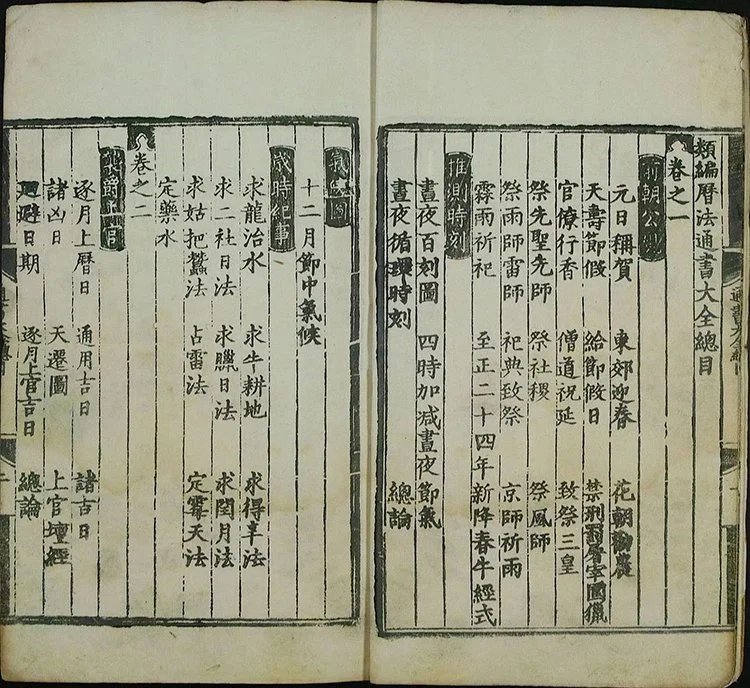 類編曆法通書大全總目
卷之一
前朝公
元日稱賀 東郊迎春 花朝勸農
天壽節假 給節假日 禁刑罰屠宰圍獵
官僚行香 僧道祝延 致祭三皇
祭先聖先師 祭社稷 祭風師
祭雨師雷師 祀典致祭 京師祈雨
霖雨祈祀 至正二十四年新降春牛經式
推測時刻
晝夜百刻圖 四時加减晝夜節氣
晝夜循環時刻 總論
十二月節中氣候
歲時紀事
求龍治水 求牛耕地 求得辛法
求二社日法 求臘日法 求閏月法
求姑把蠶法 占雷法 定霉天法
定藥水
卷之二
上官
逐月上曆日 通用吉日 諸吉日
諸凶日 天遷圖 上官壇經
迴避日期 逐月上官吉日 總論